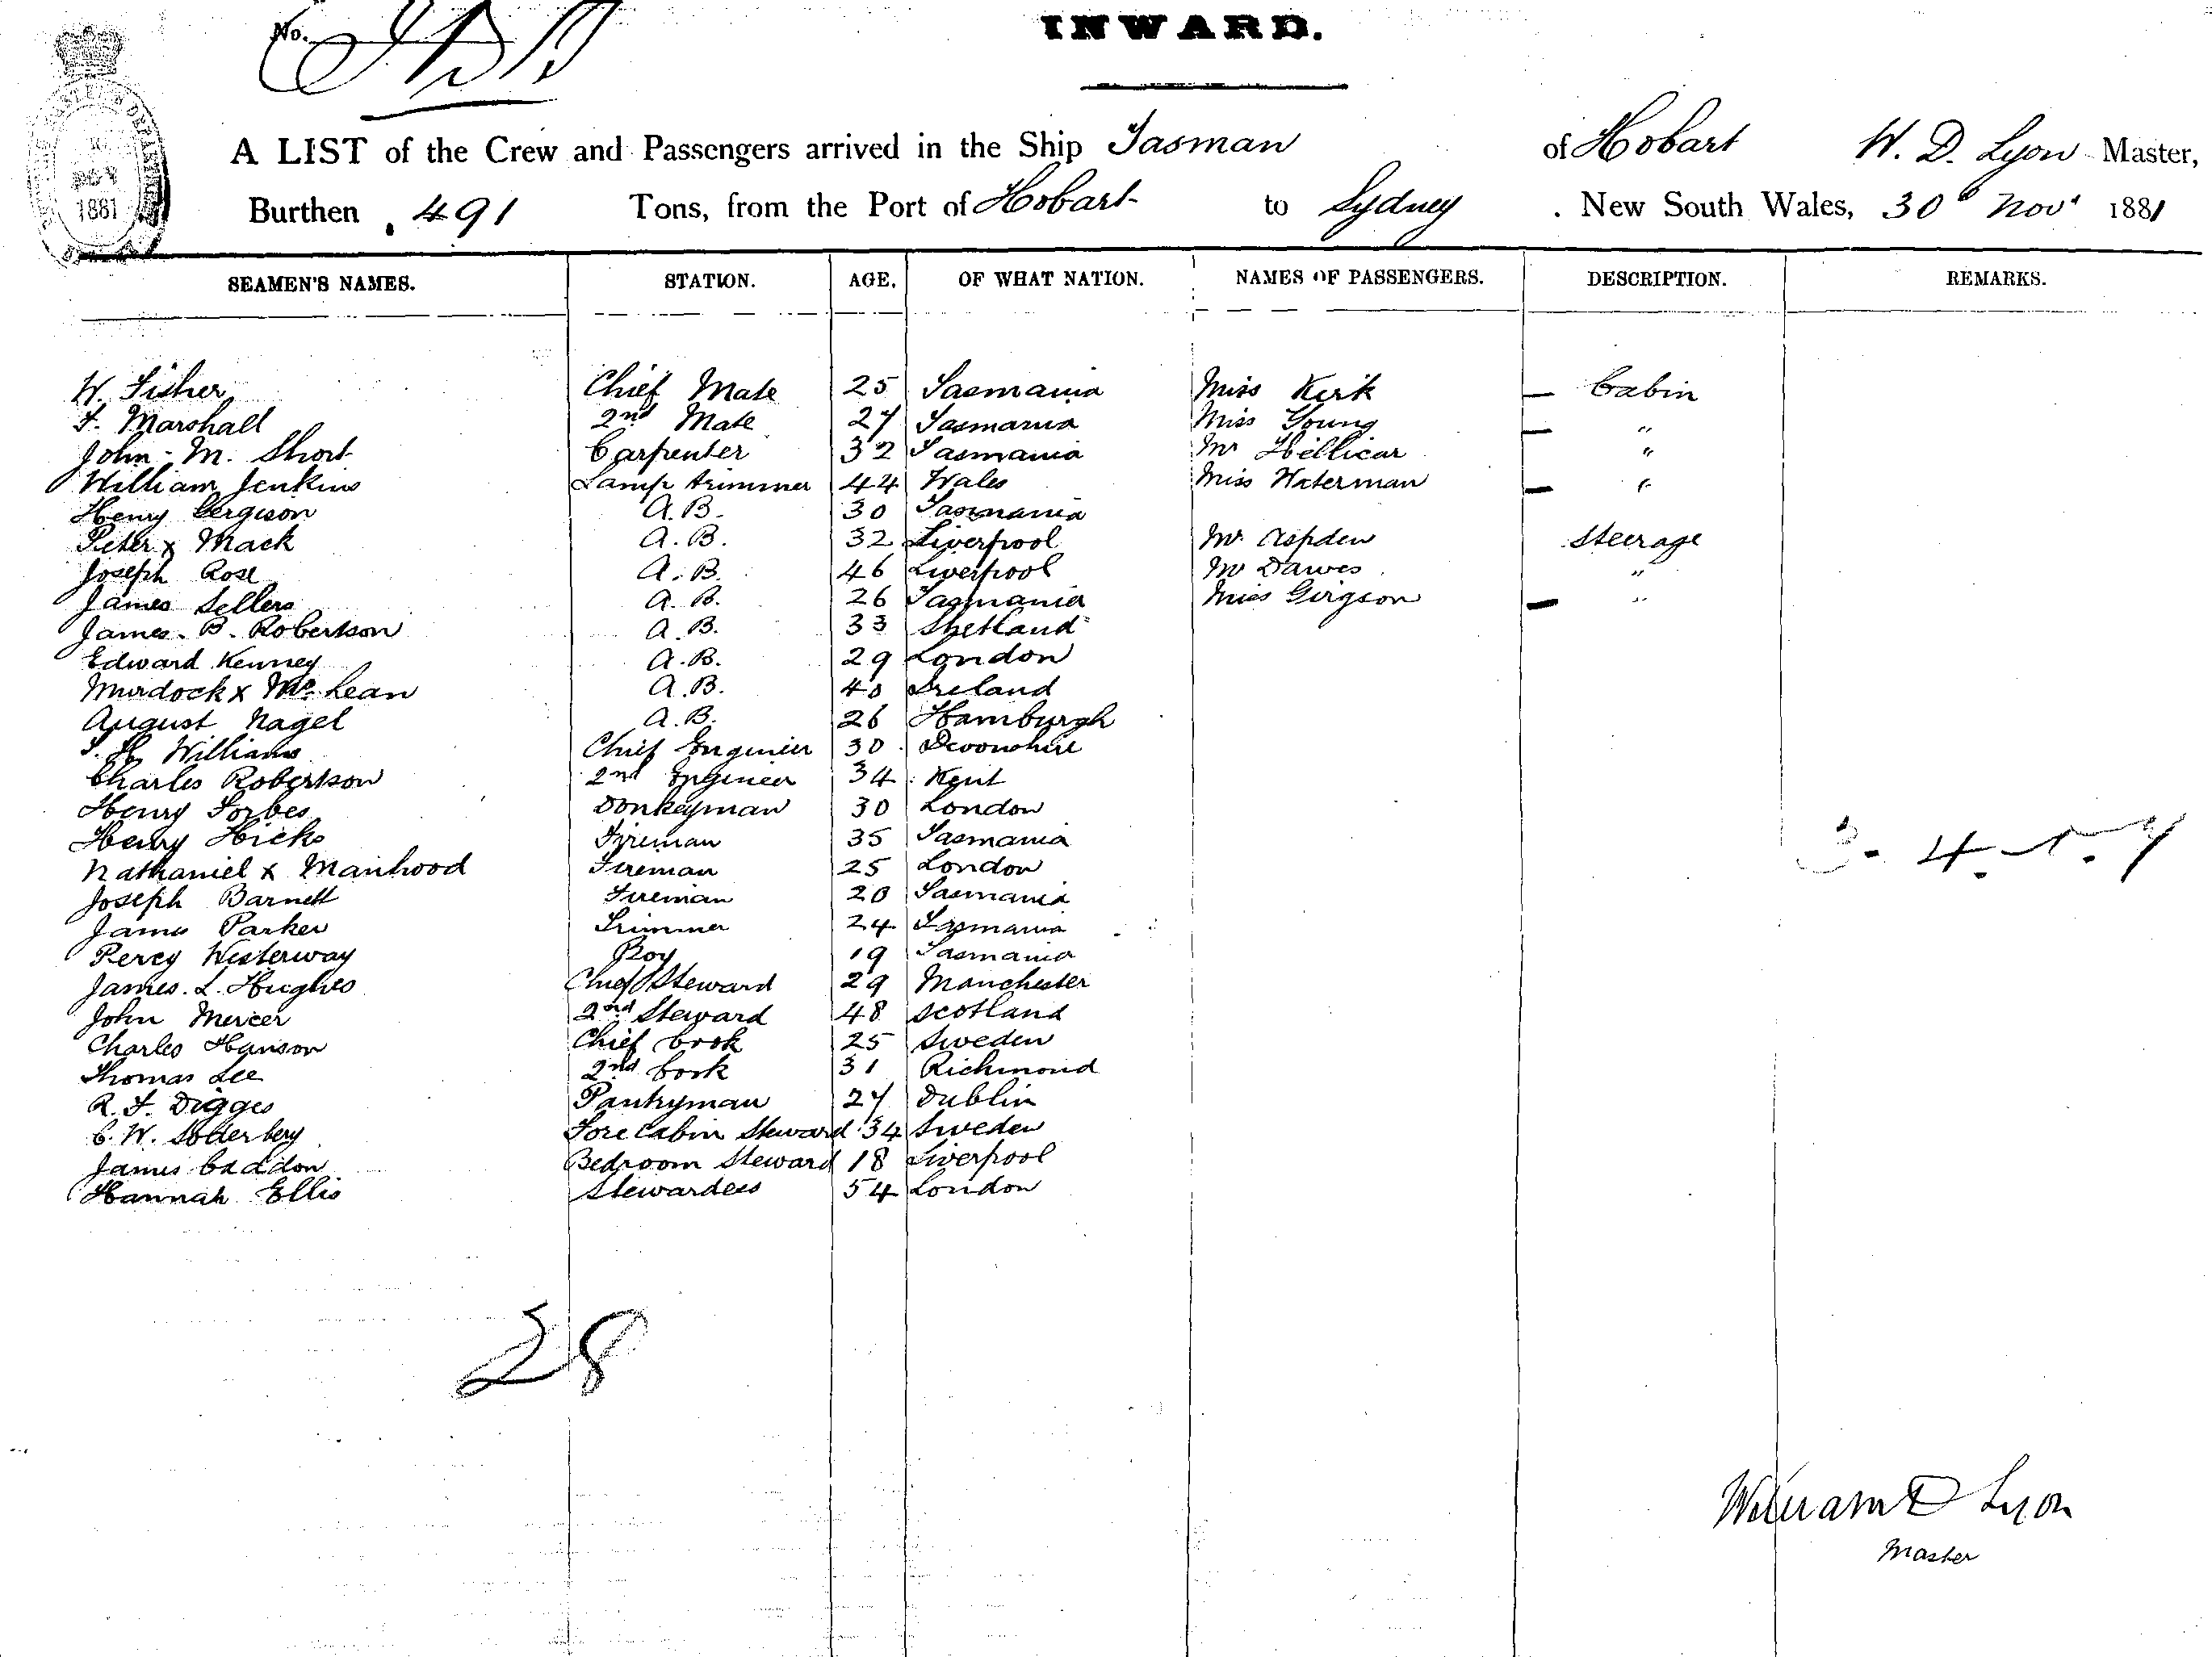 No.
INWARD.
1881
A LIST of the Crew and Passengers arrived in the Ship Tasman of Hobart W. D. Lyon Master,
Burthen 491 Tons, from the Port of Hobart to Sydney New South Wales, 30 Nov 1881
SEAMEN'S NAMES. STATION. AGE. OF WHAT NATION. NAMES OF PASSENGERS. DESCRIPTION. REMARKS.
W. Fisher Chief Mate 25 Tasmania Miss Kirk — Cabin
F. Marshall 2nd Mate 27 Tasmania Miss Young — "
John M. Short Carpenter 32 Tasmania Mr Hellicar "
William Jenkins Lamp trimmer 44 Wales Miss Waterman — "
Henry A.B. 30 Tasmania
Peter x Mack A.B. 32 Liverpool Mr Aspden Steerage
Joseph Rose A.B. 46 Liverpool Mr Dawes "
James Sellers A.B. 26 Tasmania Miss Girgson — "
James B. Robertson A.B. 33 Shetland
Edward Kenney A.B. 29 London
Murdock x McLean A.B. 40 Ireland
August Nagel A.B. 26 Hamburgh
Williams Chief Engineer 30 Devonshire
Charles Robertson 2nd Engineer 34 Kent
Henry Forbes Donkeyman 30 London
Henry Hicks Fireman 35 Tasmania
Nathaniel x Manhood Fireman 25 London
Joseph Barnett Fireman 20 Tasmania
James Parker Trimmer 24 Tasmania
Percy Westerway Boy 19 Tasmania
James L. Hughes Chief Steward 29 Manchester
John Mercer 2nd Steward 48 Scotland
Charles Hanson Chief Cook 25 Sweden
Thomas Lee 2nd Cook 31 Richmond
R. F. Digges Pantryman 27 Dublin
C. W. Soderberg Fore Cabin Steward 34 Sweden
James Caddon Bedroom Steward 18 Liverpool
Hannah Ellis Stewardess 54 London
28
William D Lyon
Master